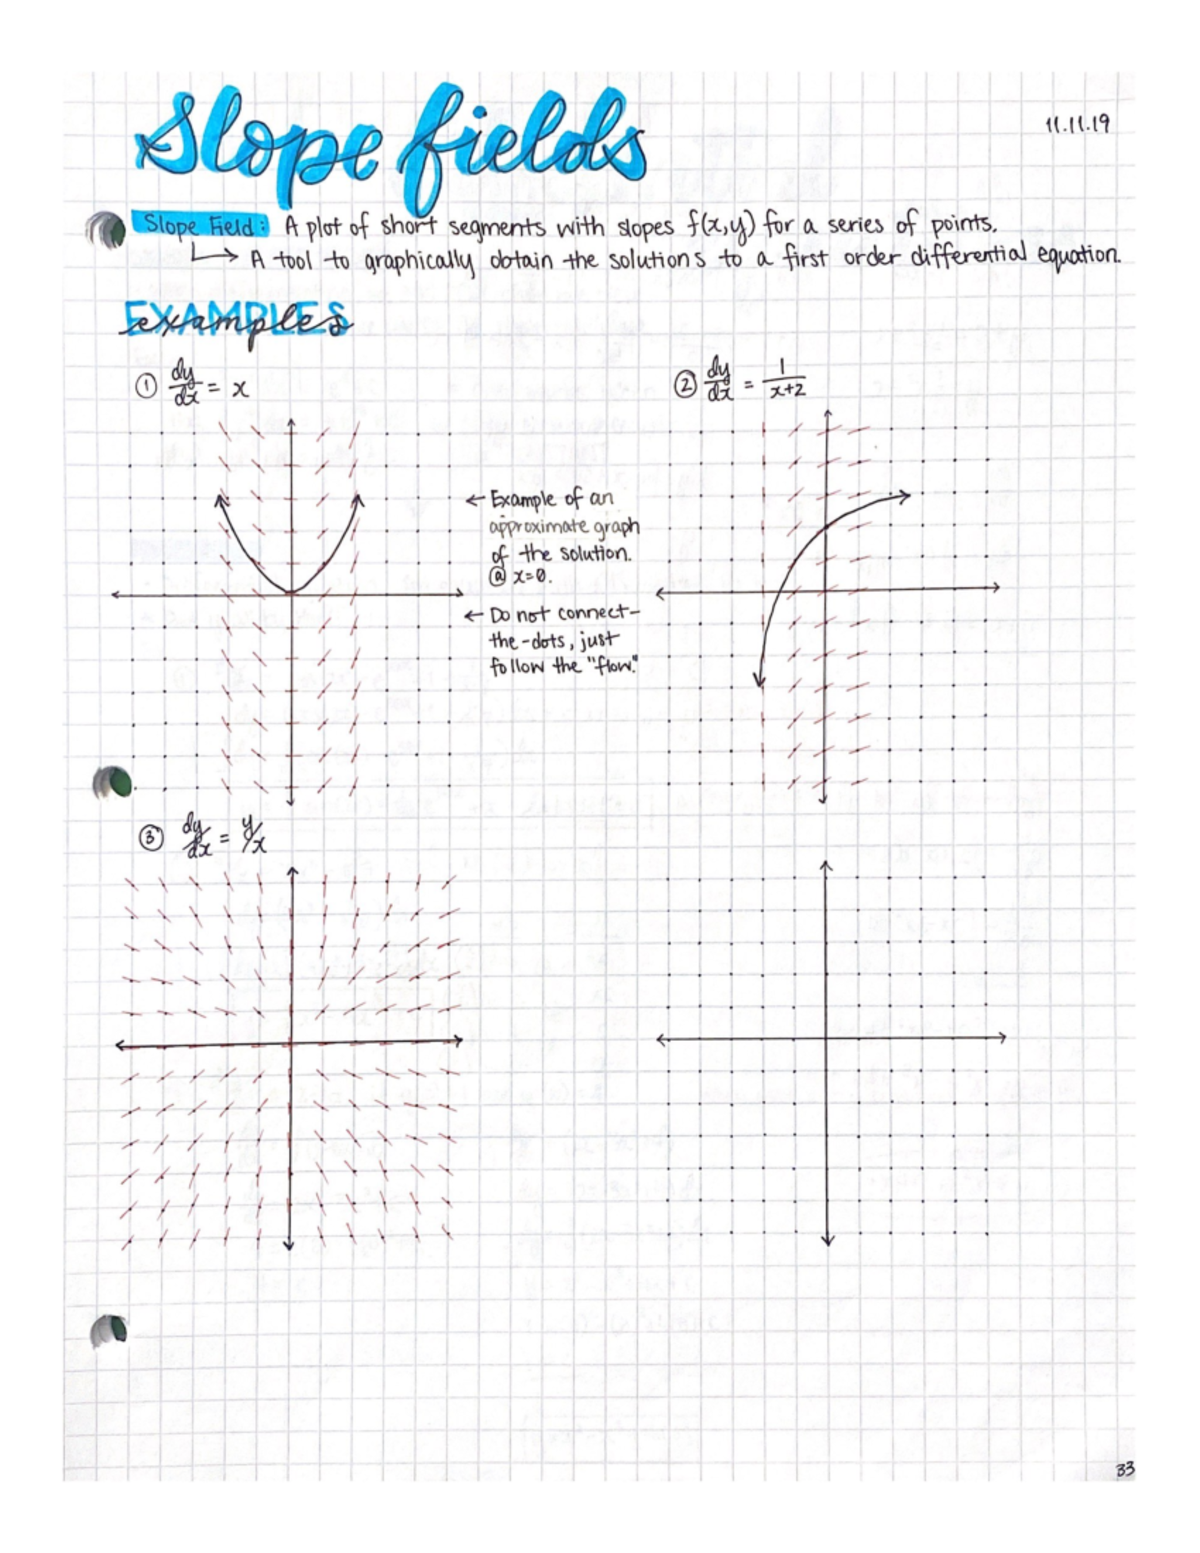 Slope fields
11.11.19
Slope Field: A plot of short segments with slopes f(x,y) for a series of points.
↳ A tool to graphically obtain the solutions to a first order differential equation.
EXAMPLES
examples
① dy/dx = x
② dy/dx = 1/x+2
← Example of an
approximate graph
of the solution.
@ x=0.
← Do not connect-
the-dots, just
follow the "flow."
③ dy/dx = y/x
33